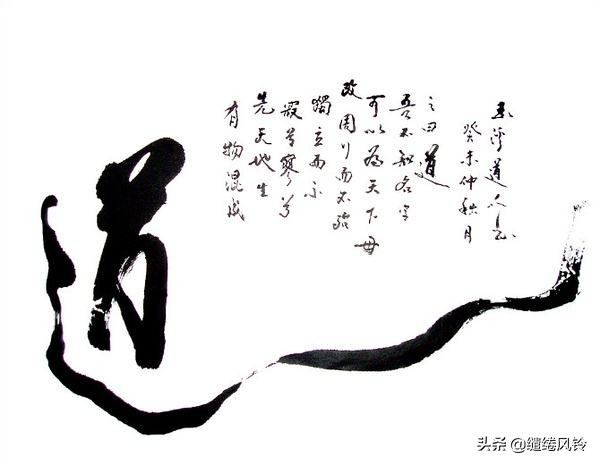 道
有物混成
先天地生
寂兮寥兮
獨立而不
改周行而不殆
可以為天下母
吾不知名字
之曰道
癸未仲秋月
道人
头条 @缱绻风铃